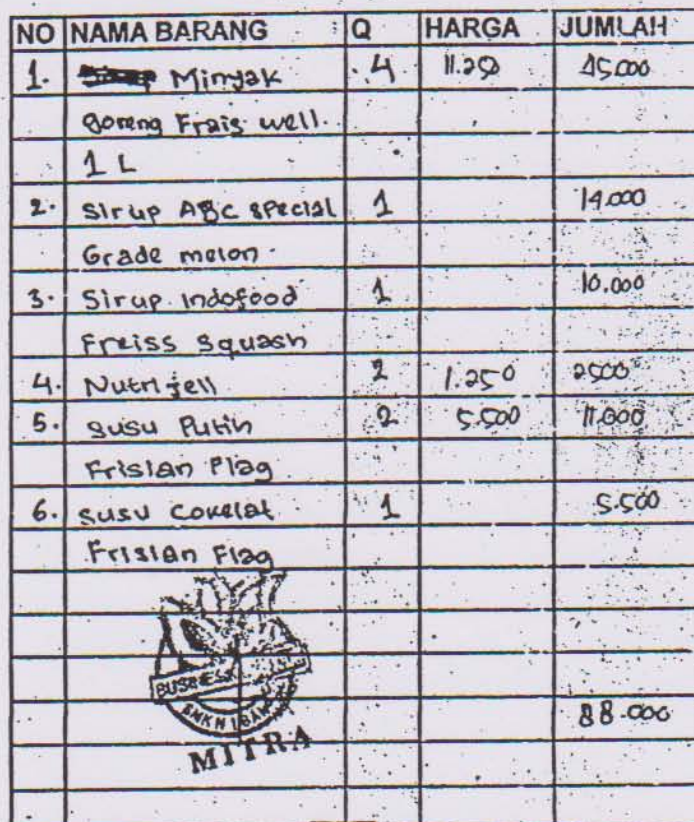 NO NAMA BARANG Q HARGA JUMLAH
1. Minyak 4 11.250 45.000
goreng Frais well.
1 L
2. Sirup ABC special 1 14.000
Grade melon.
3. Sirup indofood 1 10.000
Freiss squash
4. Nutri jell 2 1.250 2500
5. susu Putih 2 5.500 11.000
Frisian Flag
6. susu Cokelat 1 5.500
Frisian Flag
BUSINESS
SMKN 1
88.000
MITRA